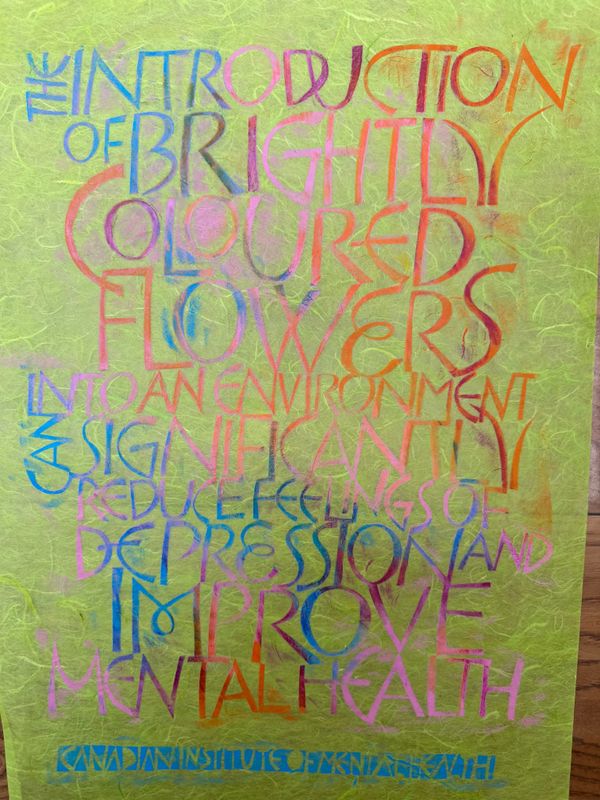 THE INTRODUCTION
OF BRIGHTLY
COLOURED
FLOWERS
INTO AN ENVIRONMENT
CAN SIGNIFICANTLY
REDUCE FEELINGS OF
DEPRESSION AND
IMPROVE
MENTAL HEALTH
CANADIAN INSTITUTE OF MENTAL HEALTH!